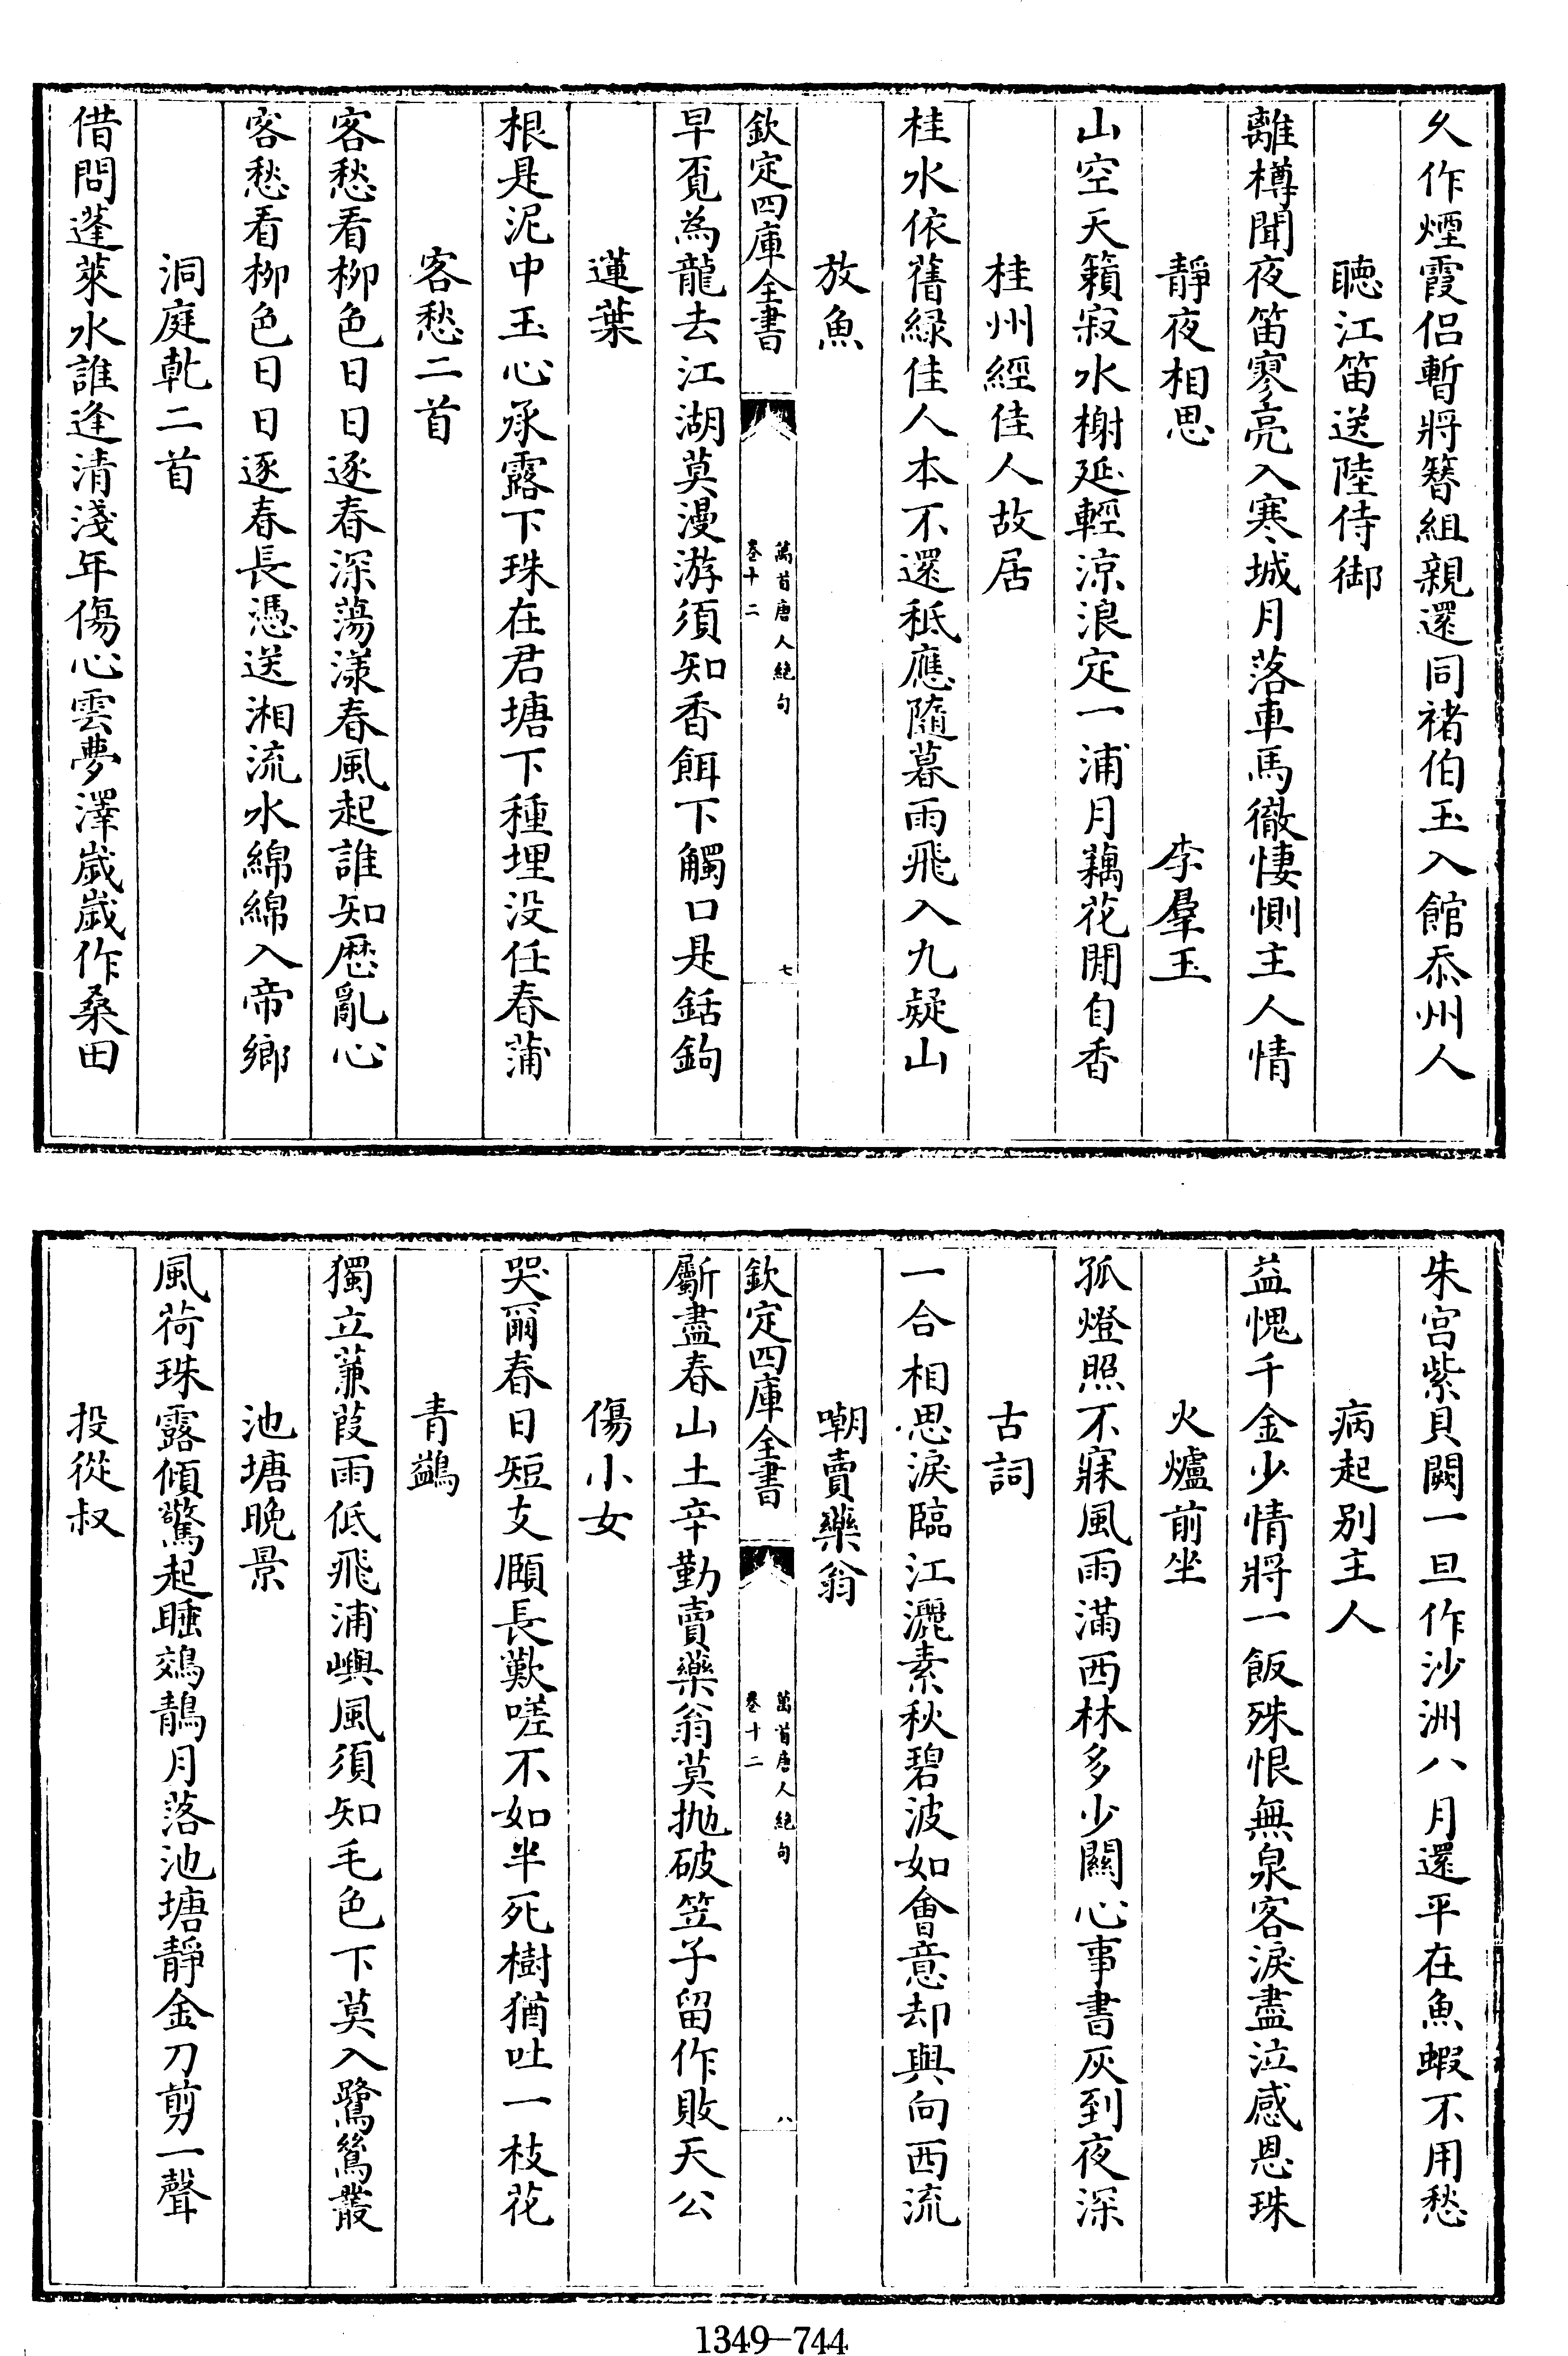 久作煙霞侣暫將簪組親還同褚伯玉入館忝州人
聽江笛送陸侍御
離樽聞夜笛寥亮入寒城月落車馬徹悽惻主人情
靜夜相思　李羣玉
山空天籟寂水榭延輕涼浪定一浦月藕花閒自香
桂州經佳人故居
桂水依舊緑佳人本不還秪應隨暮雨飛入九疑山
放魚
欽定四庫全書
萬首唐人絶句
卷十二
七
早覔為龍去江湖莫漫游須知香餌下觸口是銛鉤
蓮葉
根是泥中玉心承露下珠在君塘下種埋没任春蒲
客愁二首
客愁看栁色日日逐春深蕩漾春風起誰知歴亂心
客愁看栁色日日逐春長憑送湘流水綿綿入帝鄉
洞庭乹二首
借問蓬萊水誰逢清淺年傷心雲夢澤歲歲作桑田
朱宫紫貝闕一旦作沙洲八月還平在魚蝦不用愁
病起别主人
益愧千金少情將一飯殊恨無泉客淚盡泣感恩珠
火爐前坐
孤燈照不寐風雨滿西林多少關心事書灰到夜深
古詞
一合相思淚臨江灑素秋碧波如會意却與向西流
嘲賣藥翁
欽定四庫全書
萬首唐人絶句
卷十二
八
劚盡春山土辛勤賣藥翁莫抛破笠子留作敗天公
傷小女
哭爾春日短支頤長歎嗟不如半死樹猶吐一枝花
青鷁
獨立蒹葭雨低飛浦嶼風須知毛色下莫入鷺鴛叢
池塘晚景
風荷珠露傾驚起睡鵁鶄月落池塘靜金刀剪一聲
投從叔
1349-744